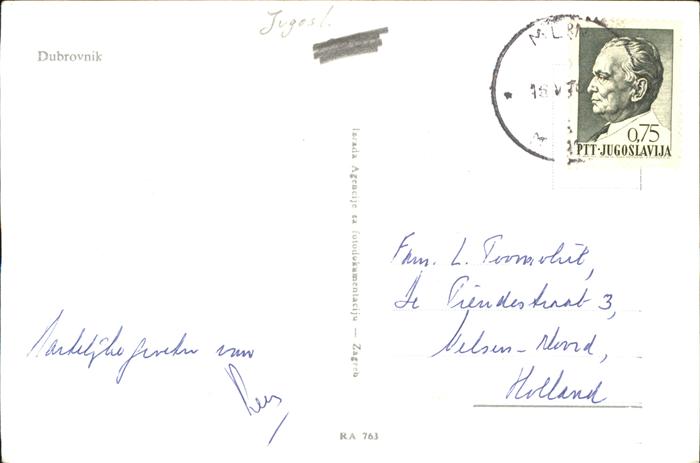 Jugosl.
Dubrovnik
MLIN
0,75
PTT·JUGOSLAVIJA
Izrada Agencije za fotodokumentaciju — Zagreb
Fam. L.
De Tiendestraat 3,
Velsen-Noord,
Holland
Hartelijke groeten van
Kees
RA 763